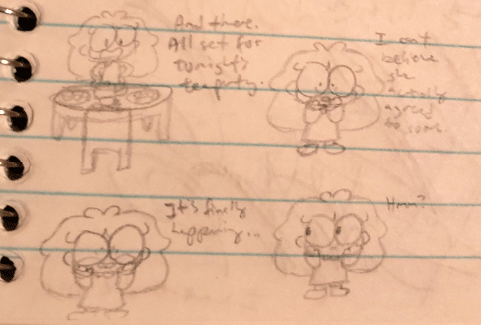 And there.
All set for
tonight's
tea party.
I can't
believe
she
actually
agreed
to come
It's finally
happening...
Hmm?